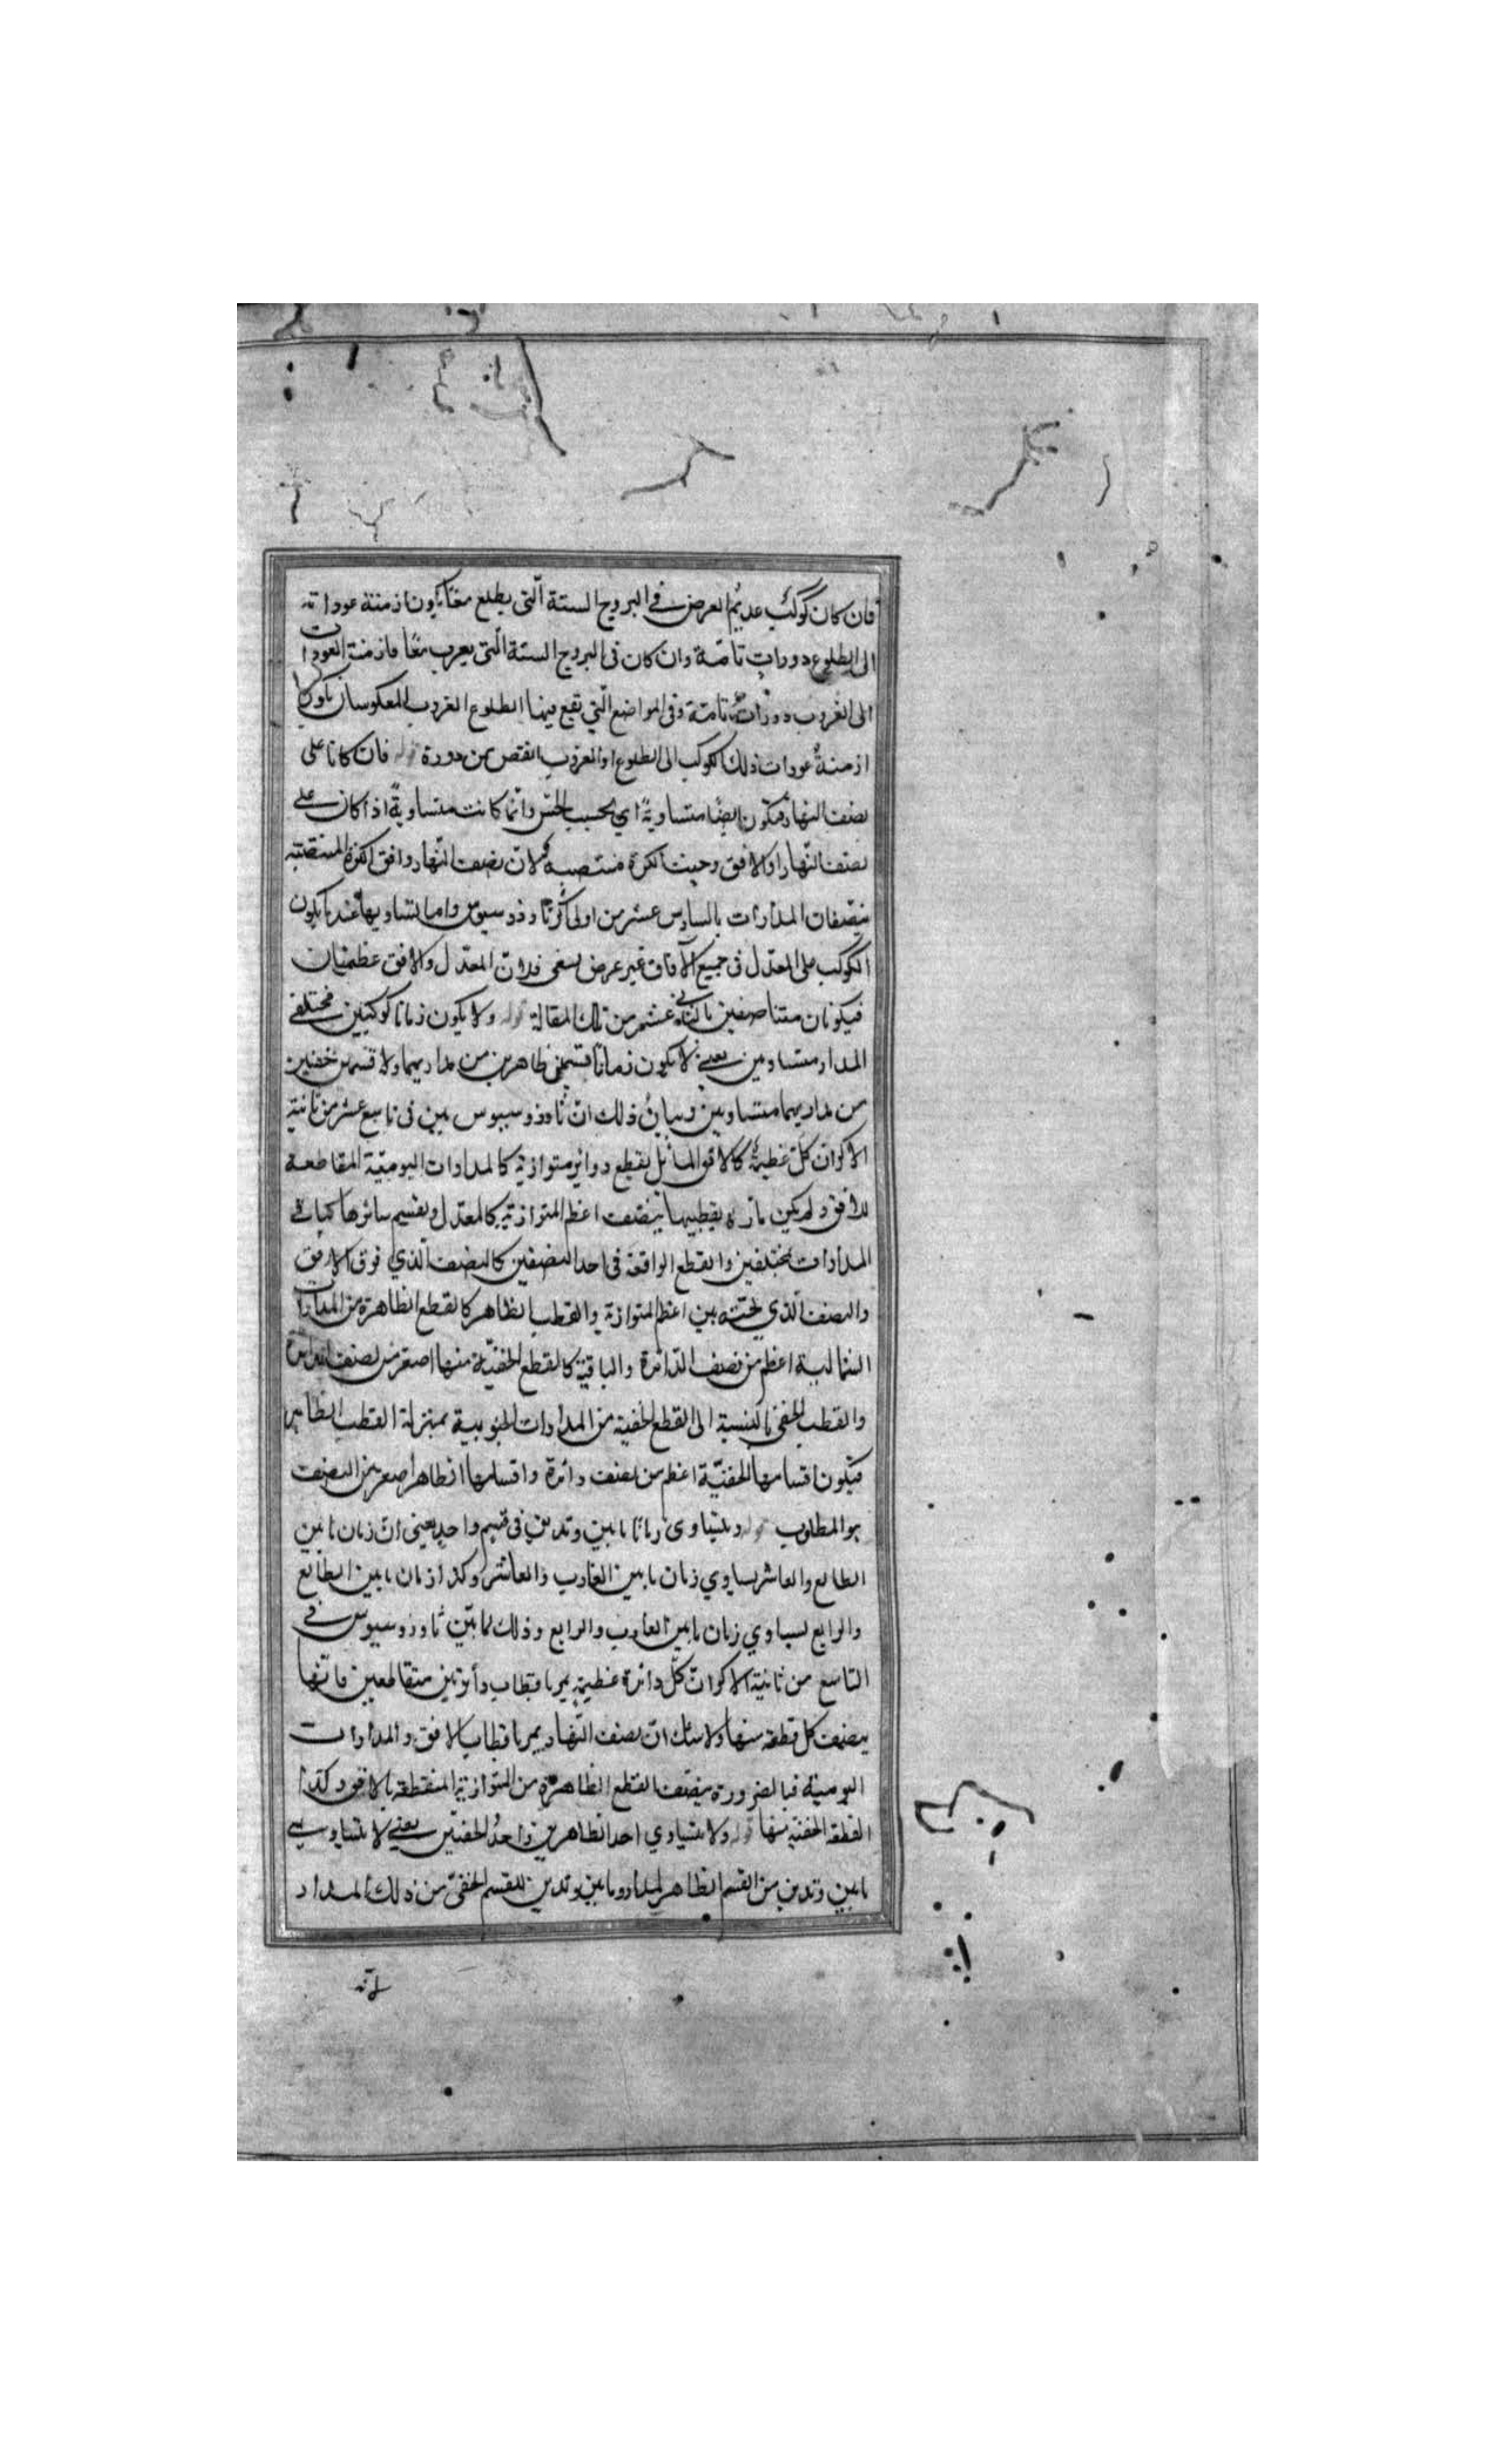 فان كان كوكب عديم العرض في البروج الستة التي يطلع معا يكون ازمنة عوداته
الى الطلوع دورات تامة وان كان في البروج الستة التي يغرب معا فازمنة العودات
الى الغروب دورات تامة وفي المواضع التي تقع فيها الطلوع الغروب المعكوسان يكون
ازمنة عودات ذلك الكوكب الى الطلوع او الغروب انقص من دورة قوله فان كانا على
نصف النهار فتكون ايضا متساوية اي بحسب الحس وانما كانت متساوية اذا كان على
نصف النهار او الافق وحيث الكرة منتصبة لان نصف النهار وافق الكرة المنتصبة
ينصفان المدارات بالسادس عشر من اولى اكرثاوذوسيوس واما تساويها عند ما يكون
الكوكب على المعدل في جميع الآفاق غير عرض تسعين فلان المعدل والافق عظيمتان
فيكونان متناصفين بالثاني عشر من تلك المقالة قوله ولا يكون زمانا كوكبين مختلفي
المدار متساويين يعني لا يكون زمانا قسمين ظاهرين من مداريهما ولا قسمين خفيين
من مداريهما متساويين وبيان ذلك ان ثاوذوسيوس بين في تاسع عشر من ثانية
الاكر ان كل عظيمة كالافق المائل يقطع دوائر متوازية كالمدارات اليومية المقاطعة
للافق ولم يكن مارة بقطبيها ينصف اعظم المتوازية كالمعدل ويقسم سائرها كباقي
المدارات بمختلفين والقطع الواقعة في احد النصفين كالنصف الذي فوق الافق
والنصف الذي تحته بين اعظم المتوازية والقطب الظاهر كالقطع الظاهرة من المدارات
الشمالية اعظم من نصف الدائرة والباقية كالقطع الخفية منها اصغر من نصف الدائرة
والقطب الخفي بالنسبة الى القطع الخفية من المدارات الجنوبية بمنزلة القطب الظاهر
فيكون اقسامها الخفية اعظم من نصف دائرة واقسامها الظاهرا صغر من النصف
هو المطلوب قوله ويتساوى زمانا ما بين وتدين في قسم واحد يعني ان زمان ما بين
الطالع والعاشر يساوي زمان ما بين الغارب والعاشر وكذا زمان ما بين الطالع
والرابع يساوي زمان ما بين الغارب والرابع وذلك لما بين ثاوذوسيوس في
التاسع من ثانية الاكر ان كل دائرة عظيمة يمر باقطاب دائرتين متقاطعين فانها
ينصف كل قطعة منها ولا شك ان نصف النهار يمر باقطاب الافق والمدارات
اليومية فبالضرورة ينصف القطع الظاهرة من المتوازية المنقطعة بالافق وكذا
القطعة الخفية منها قوله ولا يتساوي احد الظاهرين واحد الخفيين يعني لا يتساوى
ما بين وتدين من القسم الظاهر لمدار وما بين وتدين للقسم الخفي من ذلك المدار
لانه